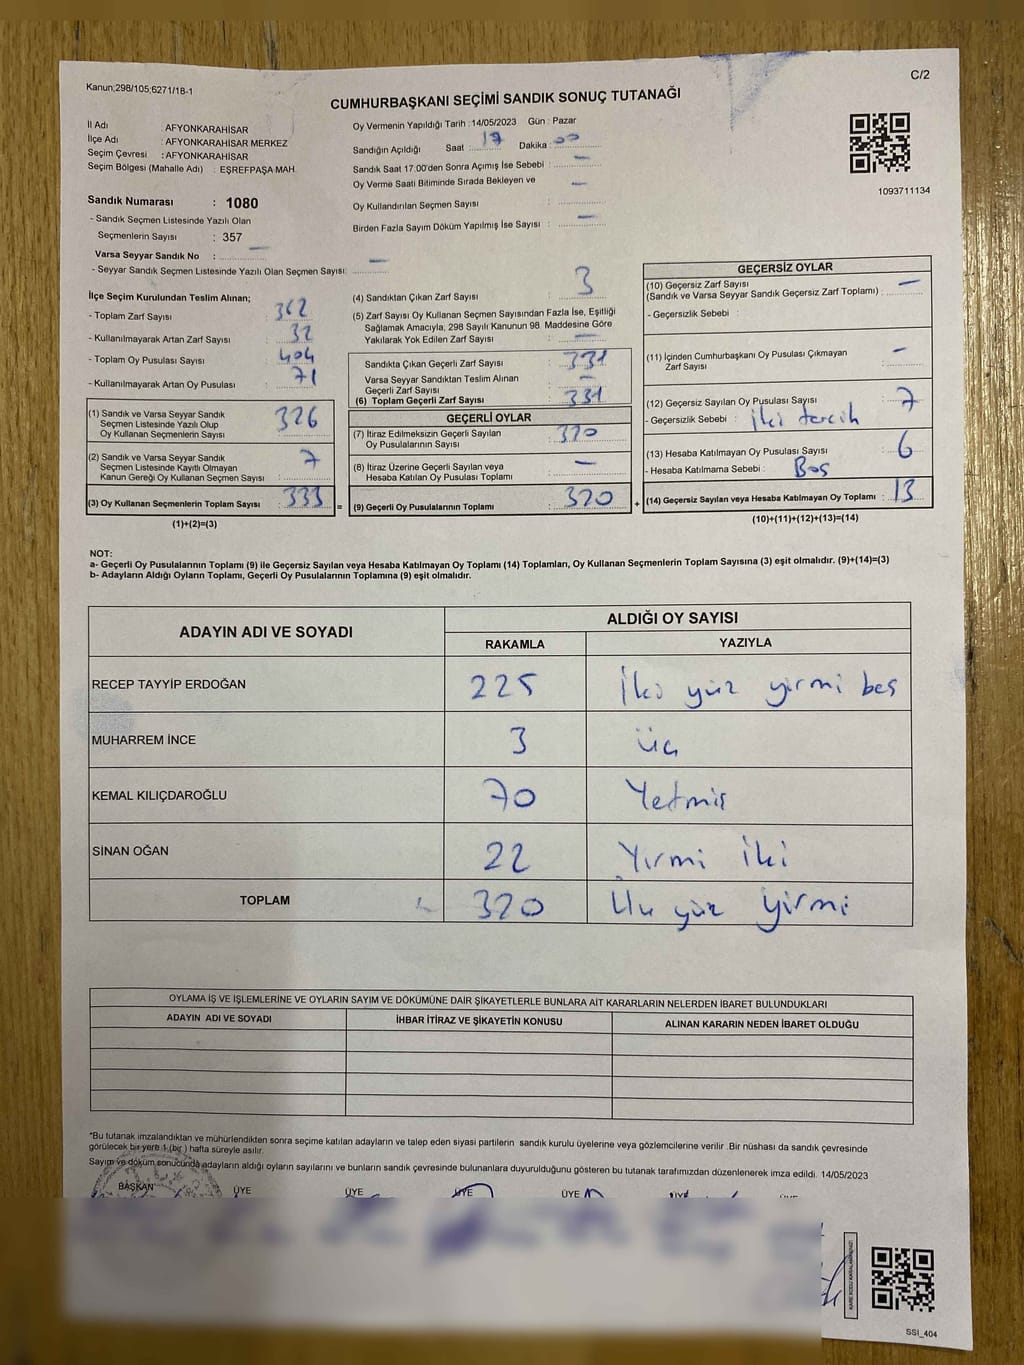 C/2
Kanun;298/105;6271/18-1
CUMHURBAŞKANI SEÇİMİ SANDIK SONUÇ TUTANAĞI
İl Adı : AFYONKARAHİSAR
İlçe Adı : AFYONKARAHİSAR MERKEZ
Seçim Çevresi : AFYONKARAHİSAR
Seçim Bölgesi (Mahalle Adı) : EŞREFPAŞA MAH.
Sandık Numarası : 1080
- Sandık Seçmen Listesinde Yazılı Olan
Seçmenlerin Sayısı : 357
Varsa Seyyar Sandık No : —
- Seyyar Sandık Seçmen Listesinde Yazılı Olan Seçmen Sayısı: —
Oy Vermenin Yapıldığı Tarih : 14/05/2023 Gün : Pazar
Sandığın Açıldığı Saat : 17 Dakika : 00
Sandık Saat 17:00'den Sonra Açılmış İse Sebebi : —
Oy Verme Saati Bitiminde Sırada Bekleyen ve —
Oy Kullandırılan Seçmen Sayısı :
Birden Fazla Sayım Döküm Yapılmış İse Sayısı : —
1093711134
İlçe Seçim Kurulundan Teslim Alınan;
- Toplam Zarf Sayısı : 362
- Kullanılmayarak Artan Zarf Sayısı : 32
- Toplam Oy Pusulası Sayısı : 404
- Kullanılmayarak Artan Oy Pusulası : 71
(1) Sandık ve Varsa Seyyar Sandık
Seçmen Listesinde Yazılı Olup
Oy Kullanan Seçmenlerin Sayısı : 326
(2) Sandık ve Varsa Seyyar Sandık
Seçmen Listesinde Kayıtlı Olmayan
Kanun Gereği Oy Kullanan Seçmen Sayısı : 7
(3) Oy Kullanan Seçmenlerin Toplam Sayısı : 333 =
(1)+(2)=(3)
(4) Sandıktan Çıkan Zarf Sayısı : 3
(5) Zarf Sayısı Oy Kullanan Seçmen Sayısından Fazla İse, Eşitliği
Sağlamak Amacıyla; 298 Sayılı Kanunun 98. Maddesine Göre
Yakılarak Yok Edilen Zarf Sayısı : —
Sandıkta Çıkan Geçerli Zarf Sayısı : 331
Varsa Seyyar Sandıktan Teslim Alınan
Geçerli Zarf Sayısı : —
(6) Toplam Geçerli Zarf Sayısı : 331
GEÇERLİ OYLAR
(7) İtiraz Edilmeksizin Geçerli Sayılan
Oy Pusulalarının Sayısı : 320
(8) İtiraz Üzerine Geçerli Sayılan veya
Hesaba Katılan Oy Pusulası Toplamı : —
(9) Geçerli Oy Pusulalarının Toplamı : 320 +
GEÇERSİZ OYLAR
(10) Geçersiz Zarf Sayısı
(Sandık ve Varsa Seyyar Sandık Geçersiz Zarf Toplamı) : —
- Geçersizlik Sebebi :
(11) İçinden Cumhurbaşkanı Oy Pusulası Çıkmayan
Zarf Sayısı : —
(12) Geçersiz Sayılan Oy Pusulası Sayısı : 7
- Geçersizlik Sebebi : İki tercih
(13) Hesaba Katılmayan Oy Pusulası Sayısı : 6
- Hesaba Katılmama Sebebi : Boş
(14) Geçersiz Sayılan veya Hesaba Katılmayan Oy Toplamı : 13
(10)+(11)+(12)+(13)=(14)
NOT:
a- Geçerli Oy Pusulalarının Toplamı (9) ile Geçersiz Sayılan veya Hesaba Katılmayan Oy Toplamı (14) Toplamları, Oy Kullanan Seçmenlerin Toplam Sayısına (3) eşit olmalıdır. (9)+(14)=(3)
b- Adayların Aldığı Oyların Toplamı, Geçerli Oy Pusulalarının Toplamına (9) eşit olmalıdır.
ADAYIN ADI VE SOYADI ALDIĞI OY SAYISI
RAKAMLA YAZIYLA
RECEP TAYYİP ERDOĞAN 225 İki yüz yirmi beş
MUHARREM İNCE 3 üç
KEMAL KILIÇDAROĞLU 70 Yetmiş
SİNAN OĞAN 22 Yirmi iki
TOPLAM 320 yüz yirmi
OYLAMA İŞ VE İŞLEMLERİNE VE OYLARIN SAYIM VE DÖKÜMÜNE DAİR ŞİKAYETLERLE BUNLARA AİT KARARLARIN NELERDEN İBARET BULUNDUKLARI
ADAYIN ADI VE SOYADI İHBAR İTİRAZ VE ŞİKAYETİN KONUSU ALINAN KARARIN NEDEN İBARET OLDUĞU
*Bu tutanak imzalandıktan ve mühürlendikten sonra seçime katılan adayların ve talep eden siyasi partilerin sandık kurulu üyelerine veya gözlemcilerine verilir .Bir nüshası da sandık çevresinde
görülecek bir yere 1 (bir ) hafta süreyle asılır.
Sayım ve döküm sonucunda adayların aldığı oyların sayılarını ve bunların sandık çevresinde bulunanlara duyurulduğunu gösteren bu tutanak tarafımızdan düzenlenerek imza edildi. 14/05/2023
BAŞKAN ÜYE ÜYE ÜYE ÜYE
SSI_404